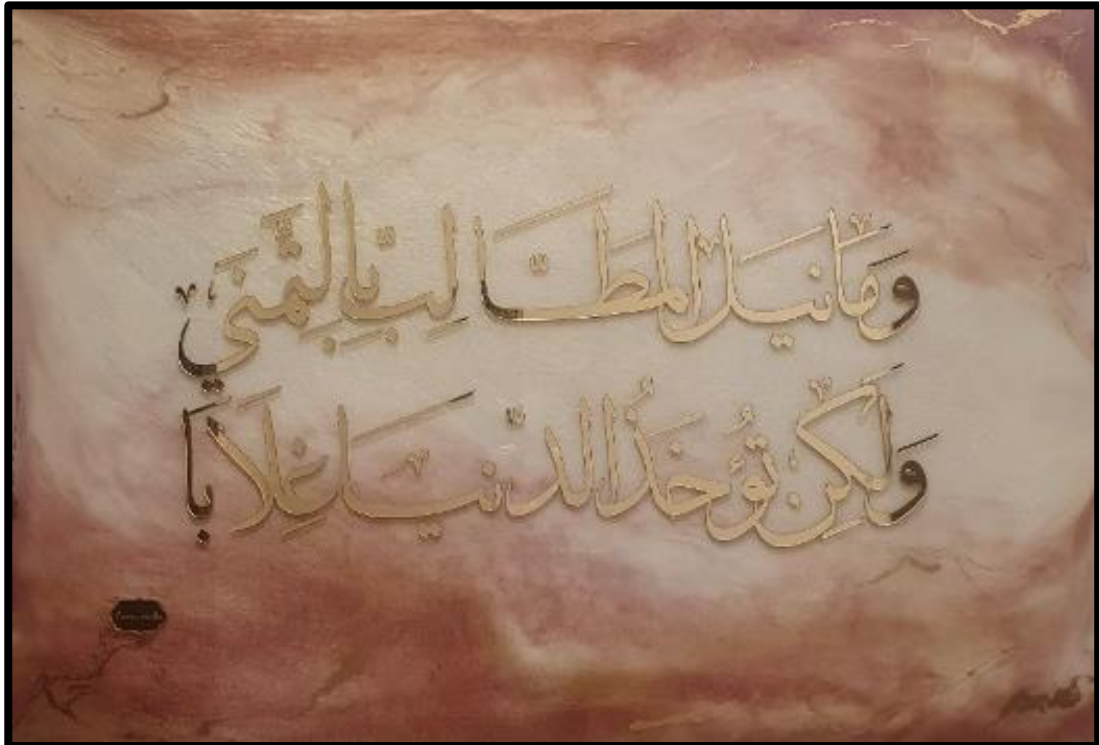 وَمَا نَيلُ المَطَالِبِ بِالتَّمَنِّي
وَلَكِن تُؤخَذُ الدُّنْيَا غِلَابَا